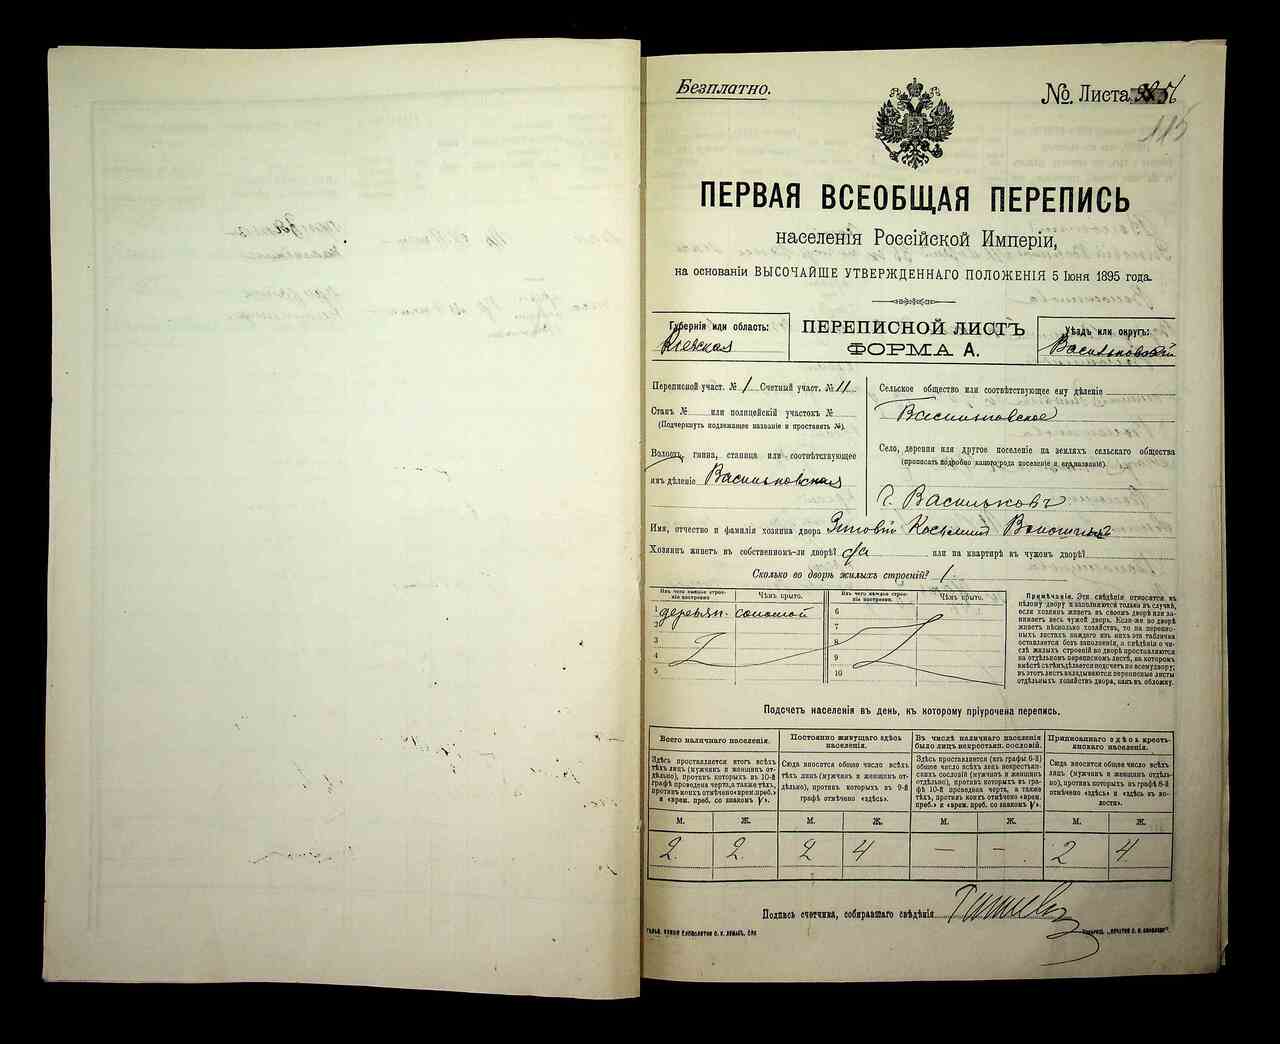 Безплатно.
№. Листа 56
115
ПЕРВАЯ ВСЕОБЩАЯ ПЕРЕПИСЬ
населенія Россійской Имперіи,
на основаніи ВЫСОЧАЙШЕ УТВЕРЖДЕННАГО ПОЛОЖЕНІЯ 5 Іюня 1895 года.
Губернія или область:
Кіевская
ПЕРЕПИСНОЙ ЛИСТЪ
ФОРМА А.
Уѣздъ или округъ:
Васильковскій
Переписной участ. № 1 Счетный участ. № 11
Станъ № или полицейскій участокъ №
(Подчеркнуть подлежащее названіе и проставить №).
Волость, гмина, станица или соотвѣтствующее
имъ дѣленіе Васильковская
Сельское общество или соотвѣтствующее ему дѣленіе
Васильковское
Село, деревня или другое поселеніе на земляхъ сельскаго общества
(прописать подробно какого рода поселеніе и его названіе)
г. Васильковъ
Имя, отчество и фамилія хозяина двора Зиновій Косьминъ
Хозяинъ живетъ въ собственномъ-ли дворѣ? да или на квартирѣ въ чужомъ дворѣ?
Сколько во дворѣ жилыхъ строеній? 1.
Изъ чего каждое строеніе построено. Чѣмъ крыто. Изъ чего каждое строеніе построено. Чѣмъ крыто.
1 деревян. соломой 6
2 7
3 8
4 9
5 10
Примѣчанія. Эти свѣдѣнія относятся къ
цѣлому двору и заполняются только въ случаѣ,
если хозяинъ живетъ въ своемъ дворѣ или занимаетъ весь чужой дворъ. Если-же во дворѣ
живетъ нѣсколько хозяйствъ, то на переписныхъ листахъ каждаго изъ нихъ эта табличка
оставляется безъ заполненія, а свѣдѣнія о числѣ жилыхъ строеній во дворѣ проставляются
на отдѣльномъ переписномъ листѣ, на которомъ
вмѣстѣ съ тѣмъ дѣлается подсчетъ по всему двору;
въ этотъ листъ вкладываются переписные листы
отдѣльныхъ хозяйствъ двора, какъ въ обложку.
Подсчетъ населенія въ день, къ которому пріурочена перепись.
Всего наличнаго населенія.
Здѣсь проставляется итогъ всѣхъ
тѣхъ лицъ (мужчинъ и женщинъ отдѣльно), противъ которыхъ въ 10-й
графѣ проведена черта, а также тѣхъ,
противъ коихъ отмѣчено «врем. преб.»
и «врем. преб. со знакомъ V».
Постоянно живущаго здѣсь
населенія.
Сюда вносится общее число всѣхъ
тѣхъ лицъ (мужчинъ и женщинъ отдѣльно), противъ которыхъ въ 9-й
графѣ отмѣчено «здѣсь».
Въ числѣ наличнаго населенія
было лицъ некрестьян. сословій.
Здѣсь проставляется (изъ графы 6-й)
общее число всѣхъ лицъ некрестьянскихъ сословій (мужчинъ и женщинъ
отдѣльно), противъ которыхъ въ графѣ 10-й проведена черта, а также
тѣхъ, противъ коихъ отмѣчено «врем.
преб.» и «врем. преб. со знакомъ V».
Приписаннаго здѣсь крестьянскаго населенія.
Сюда вносится общее число всѣхъ
лицъ (мужчинъ и женщинъ отдѣльно), противъ которыхъ въ графѣ 8-й
отмѣчено «здѣсь» и «здѣсь въ волости».
М. Ж. М. Ж. М. Ж. М. Ж.
2. 2. 2 4 — — 2 4
Подпись счетчика, собиравшаго свѣдѣнія